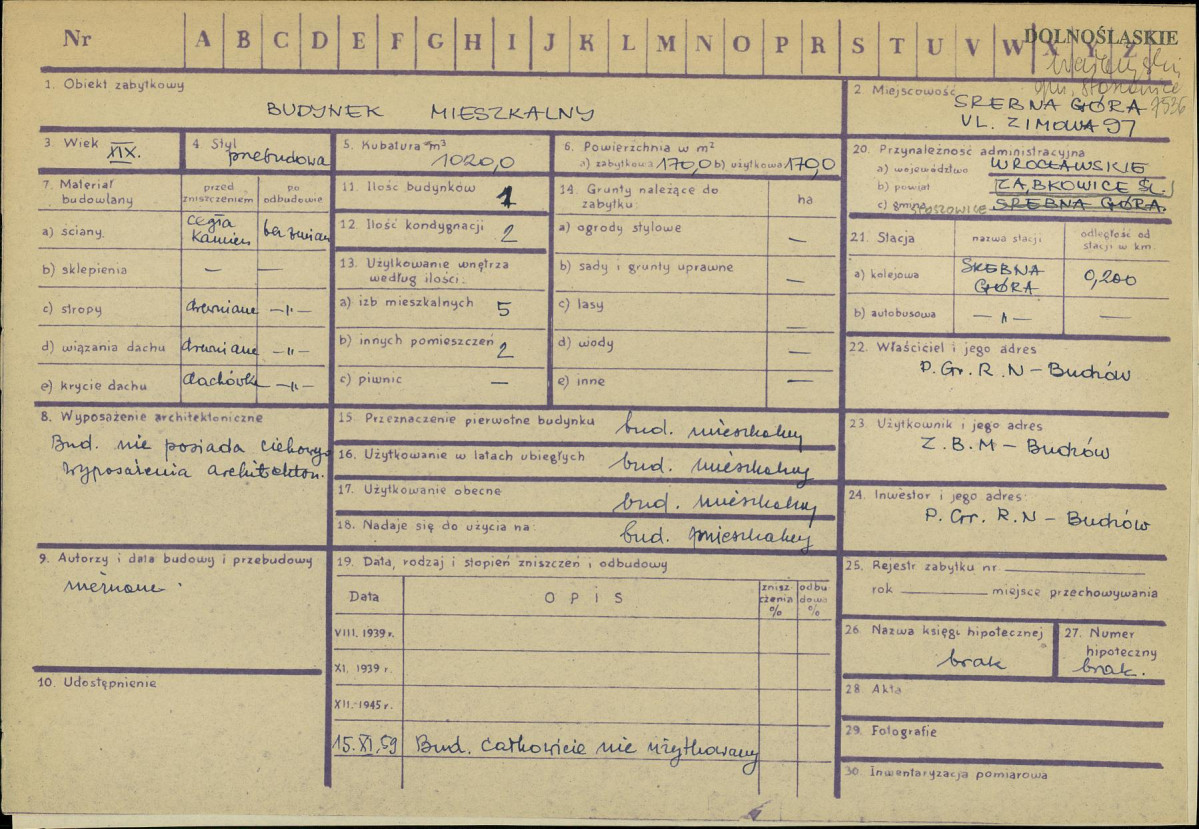 Nr A B C D E F G H I J K L M N O P R S T U V W X Y Z
DOLNOŚLĄSKIE
gm. Stoszowice
7536
1. Obiekt zabytkowy
BUDYNEK MIESZKALNY
2. Miejscowość
SREBNA GÓRA
VL. ZIMOWA 97
3. Wiek XIX.
4. Styl przebudowa
5. Kubatura m³
1020,0
6. Powierzchnia w m²
a) zabytkowa 170,0 b) użytkowa 170,0
7. Materiał budowlany
przed zniszczeniem
po odbudowie
a) ściany.
cegła Kamień
bez zmian
b) sklepienia — —
c) stropy drewniane —"—
d) wiązania dachu drewniane —"—
e) krycie dachu dachówka —"—
8. Wyposażenie architektoniczne
Bud. nie posiada ciekawego
wyposażenia architekton.
9. Autorzy i data budowy i przebudowy
nieznane.
10. Udostępnienie
11. Ilość budynków 1
12. Ilość kondygnacji 2
13. Użytkowanie wnętrza
według ilości:
a) izb mieszkalnych 5
b) innych pomieszczeń 2
c) piwnic —
14. Grunty należące do
zabytku:
ha
a) ogrody stylowe —
b) sady i grunty uprawne —
c) lasy —
d) wody —
e) inne —
15. Przeznaczenie pierwotne budynku bud. mieszkalny
16. Użytkowanie w latach ubiegłych bud. mieszkalny
17. Użytkowanie obecne bud. mieszkalny
18. Nadaje się do użycia na: bud. mieszkalny
19. Data, rodzaj i stopień zniszczeń i odbudowy
Data
OPIS
znisz-
czenia
%
odbu-
dowa
%
VIII. 1939 r.
XI. 1939 r.
XII. 1945 r.
15.XI.59 Bud. całkowicie nie użytkowany
20. Przynależność administracyjna
a) województwo WROCŁAWSKIE
b) powiat ZĄBKOWICE ŚL.
c) gmina STOSZOWICE SREBNA GÓRA.
21. Stacja
nazwa stacji
odległość od
stacji w km.
a) kolejowa SREBNA GÓRA 0,200
b) autobusowa —"— —
22. Właściciel i jego adres
P. Gr. R. N – Budzów
23. Użytkownik i jego adres
Z. B. M – Budzów
24. Inwestor i jego adres:
P. Gr. R. N – Budzów
25. Rejestr zabytku nr
rok miejsce przechowywania
26. Nazwa księgi hipotecznej
brak
27. Numer
hipoteczny
brak.
28. Akta
29. Fotografie
30. Inwentaryzacja pomiarowa